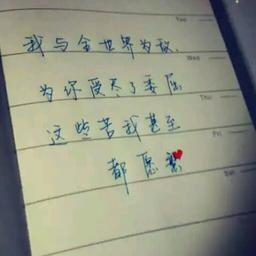 Tue
我与全世界为敌.
Wed
为你受尽了委屈
Thu
这些苦我甚至
Fri
都愿意
Sat